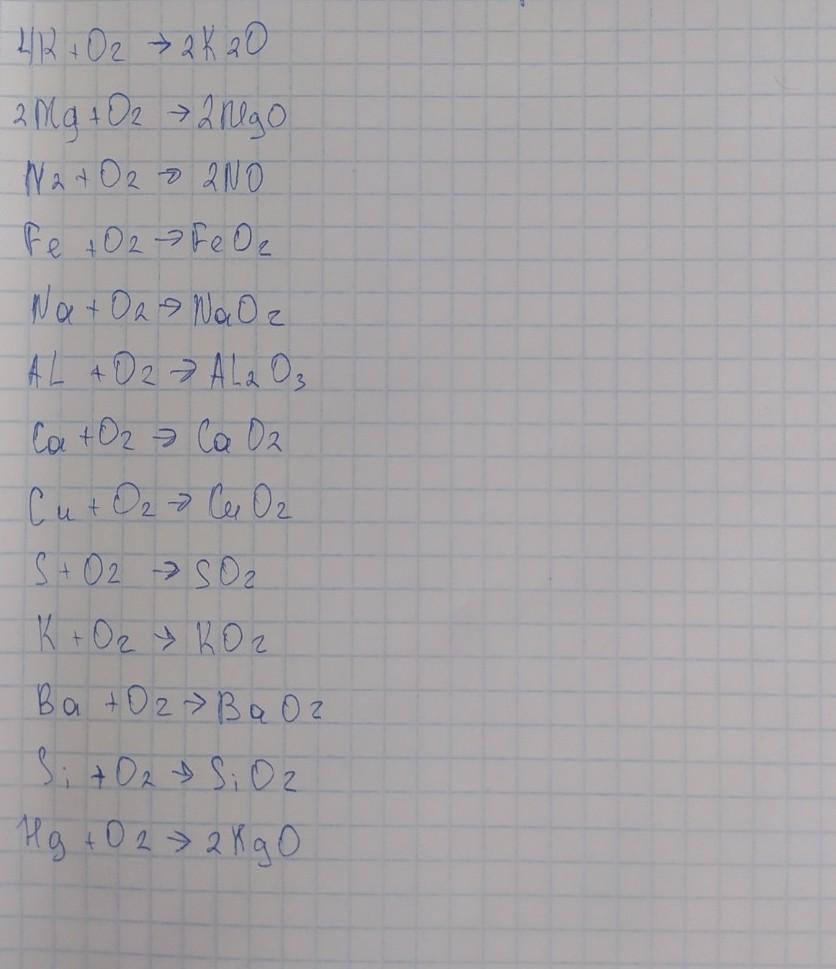 4K + O2 → 2K2O
2Mg + O2 → 2MgO
N2 + O2 → 2NO
Fe + O2 → FeO2
Na + O2 → NaO2
AL + O2 → AL2O3
Ca + O2 → CaO2
Cu + O2 → CuO2
S + O2 → SO2
K + O2 → KO2
Ba + O2 → BaO2
Si + O2 → SiO2
Hg + O2 → 2HgO